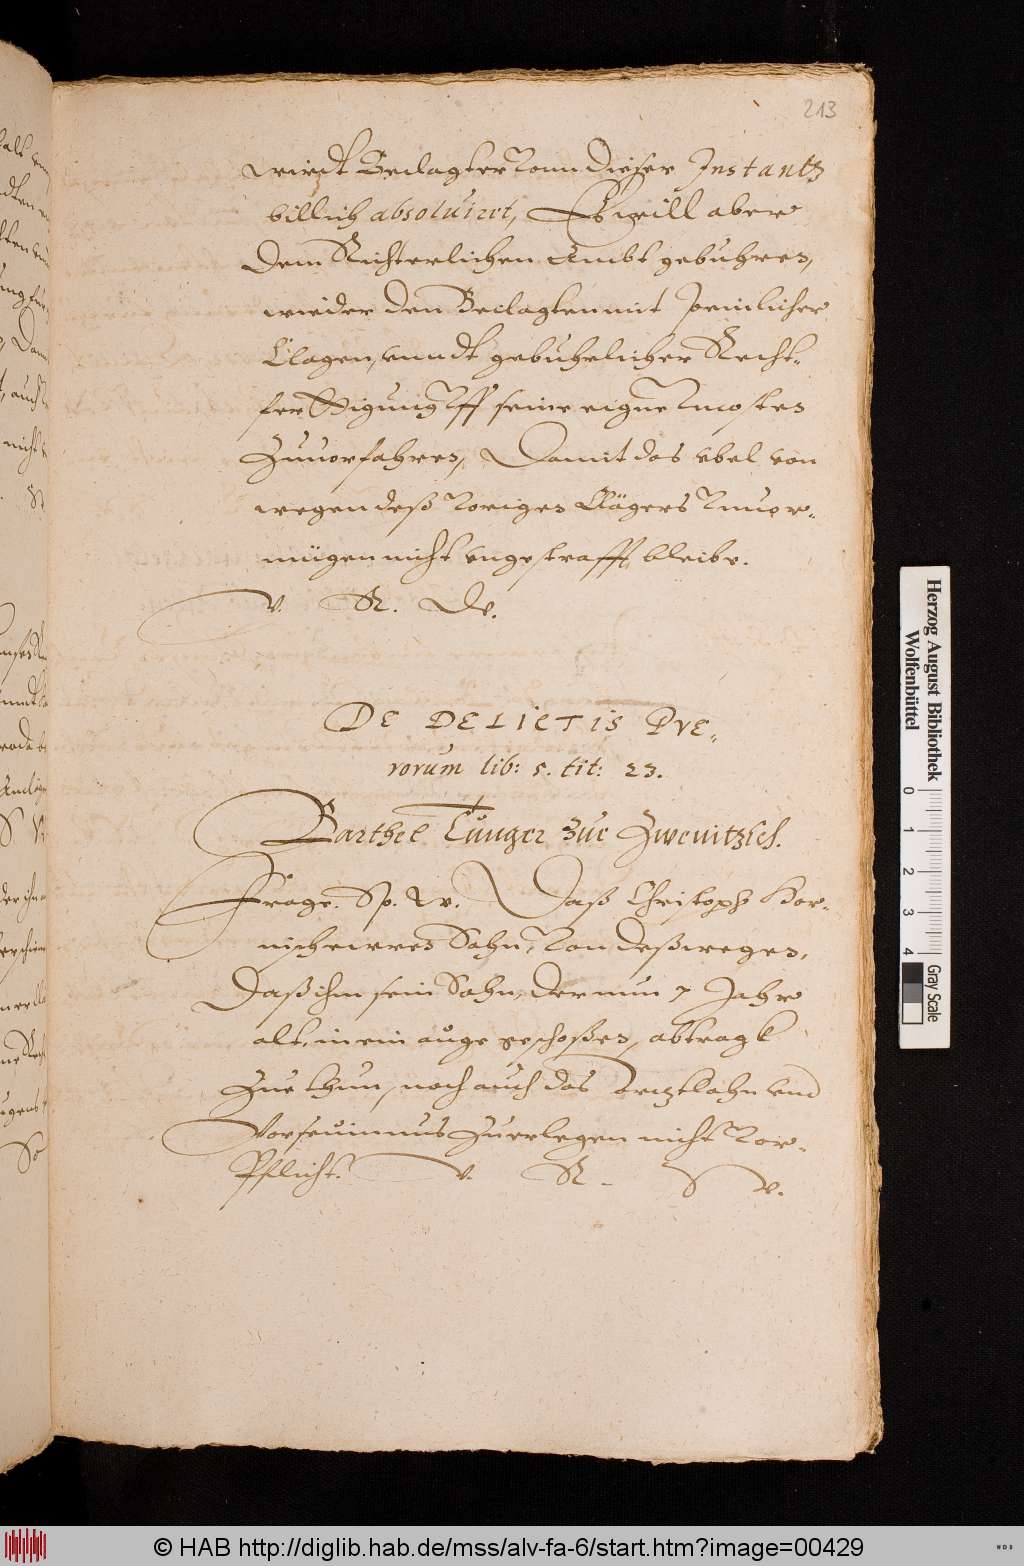 213
wirdt Beclagter vonn dieser Instantz
billich absoluiret, Es will aber
dem Richterlichen Ambt gebuhren,
wieder den Beclagten mit peinlicher
Clagen, vnndt gebuhrlicher Recht-
fertigung vff seine eigne vncosten
Zuuorfahren, Damit das vbel von
wegen deß vorigen Clägers vnuor-
mügen nicht vngestrafft bleibe.
V. R. W.
DE DELICTIS PVE-
rorum lib: 5. tit: 23.
Barthel Cunger zue Zwenitzsch.
Frage. Sp. Daß Christoph Hor-
nisch ewren Sohn, von deßwegen,
Daß ihm sein Sohn, der nun 7 Jahr
alt, in ein auge geschoßen, abtragk
Zue thun, noch auch das Artztlohn vnd
Vorseumnus Zuerlegen nicht vor-
Pflicht. V. R. W.
Herzog August Bibliothek
Wolfenbüttel
0 1 2 3 4
Gray Scale
© HAB http://diglib.hab.de/mss/alv-fa-6/start.htm?image=00429